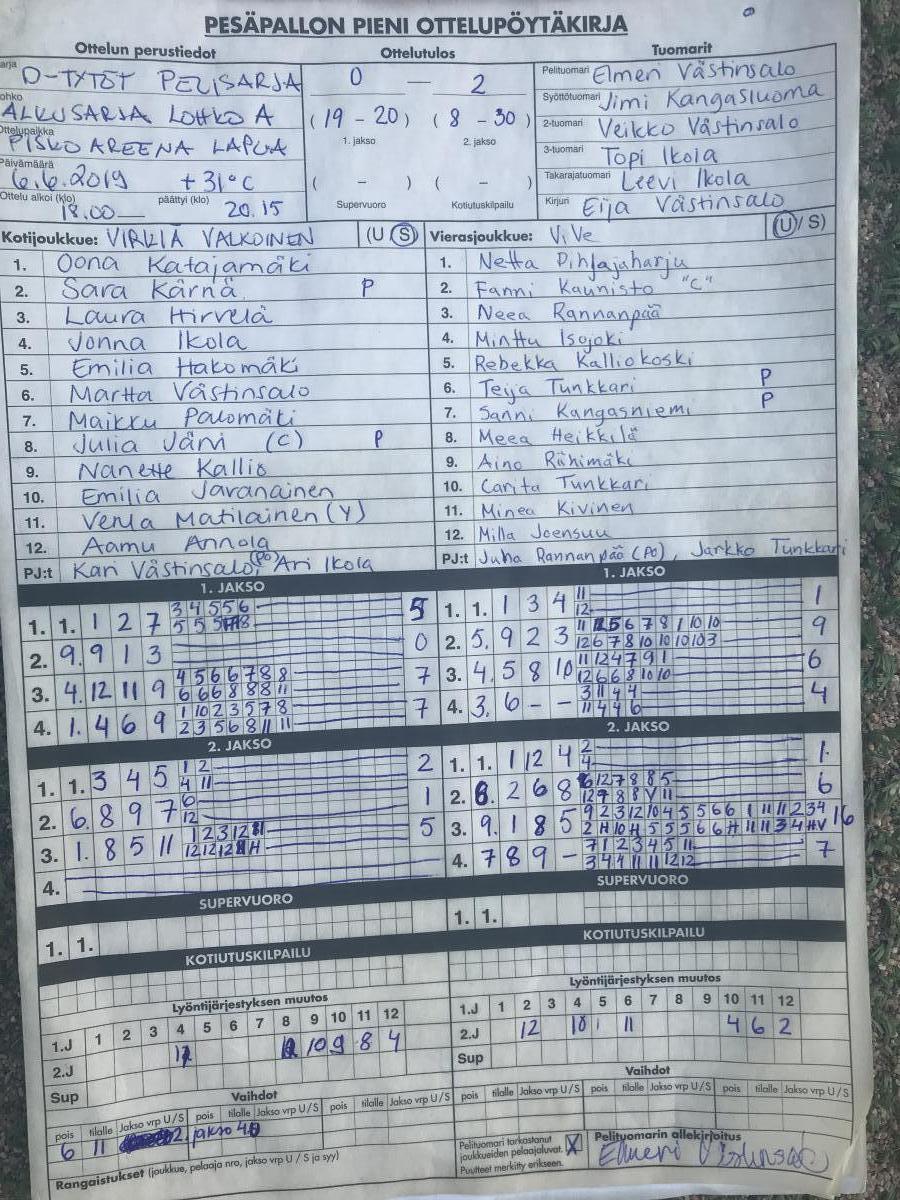 PESÄPALLON PIENI OTTELUPÖYTÄKIRJA
Ottelun perustiedot Ottelutulos Tuomarit
arja D-TYTÖT PELISARJA 0 — 2 Pelituomari Elmeri Västinsalo
ohko ALKUSARJA LOHKO A (19 - 20) (8 - 30) Syöttötuomari Jimi Kangasluoma
1. jakso 2. jakso 2-tuomari Veikko Västinsalo
Ottelupaikka PISKO AREENA LAPUA 3-tuomari Topi Ikola
Päivämäärä 6.6.2019 +31°C ( - ) ( - ) Takarajatuomari Leevi Ikola
Ottelu alkoi (klo) 18.00 päättyi (klo) 20.15 Supervuoro Kotiutuskilpailu Kirjuri Eija Västinsalo
Kotijoukkue: VIRKIÄ VALKOINEN (U S) Vierasjoukkue: ViVe (U/S)
1. Oona Katajamäki 1. Netta Pihlajaharju
2. Sara Kärnä P 2. Fanni Kaunisto "C"
3. Laura Hirvelä 3. Neea Rannanpää
4. Jonna Ikola 4. Minttu Isojoki
5. Emilia Hakomäki 5. Rebekka Kalliokoski
6. Martta Västinsalo 6. Teija Tunkkari P
7. Maikku Palomäki 7. Sanni Kangasniemi P
8. Julia Järvi (C) P 8. Meea Heikkilä
9. Nanette Kallio 9. Aino Riihimäki
10. Emilia Javanainen 10. Carita Tunkkari
11. Venla Matilainen (Y) 11. Minea Kivinen
12. Aamu Annola 12. Milla Joensuu
PJ:t Kari Västinsalo (PO), Ari Ikola PJ:t Juha Rannanpää (PO), Jarkko Tunkkari
1. JAKSO 1. JAKSO
1. 1. 1 2 7 3 4 5 5 6 5 1. 1. 1 3 4 11 12 1
2. 9. 9 1 3 0 2. 5. 9 2 3 9
3. 4. 12 11 9 4 5 6 6 7 8 8 7 3. 4. 5 8 10 11 12 4 7 9 1 6
6 6 6 8 8 8 11 12 6 6 8 10 10
4. 1. 4 6 9 1 10 2 3 5 7 8 7 4. 3. 6 - - 3 11 4 4 4
2 3 5 6 8 11 11 11 4 4 6
2. JAKSO 2. JAKSO
1. 1. 3 4 5 1 2 2 1. 1. 1 12 4 2 1
4 11 4
2. 6. 8 9 7 6 1 2. 8. 2 6 8 6 12 7 8 8 5 6
12
3. 1. 8 5 11 5 3. 9. 1 8 5 16
4. 4. 7 8 9 - 7 1 2 3 4 5 11 7
3 4 4 11 11 12 12
SUPERVUORO SUPERVUORO
1. 1. 1. 1.
KOTIUTUSKILPAILU KOTIUTUSKILPAILU
Lyöntijärjestyksen muutos Lyöntijärjestyksen muutos
1.J 1 2 3 4 5 6 7 8 9 10 11 12 1.J 1 2 3 4 5 6 7 8 9 10 11 12
2.J 10 9 8 4 2.J 12 10 11 4 6 2
Sup Sup
Vaihdot Vaihdot
pois tilalle Jakso vrp U/S pois tilalle Jakso vrp U/S pois tilalle Jakso vrp U/S pois tilalle Jakso vrp U/S pois tilalle Jakso vrp U/S pois tilalle Jakso vrp U/S
6 11 2. jakso
Rangaistukset (joukkue, pelaaja nro, jakso vrp U / S ja syy)
Pelituomari tarkastanut joukkueiden pelaajaluvat. X
Puutteet merkitty erikseen.
Pelituomarin allekirjoitus
Elmeri Västinsalo